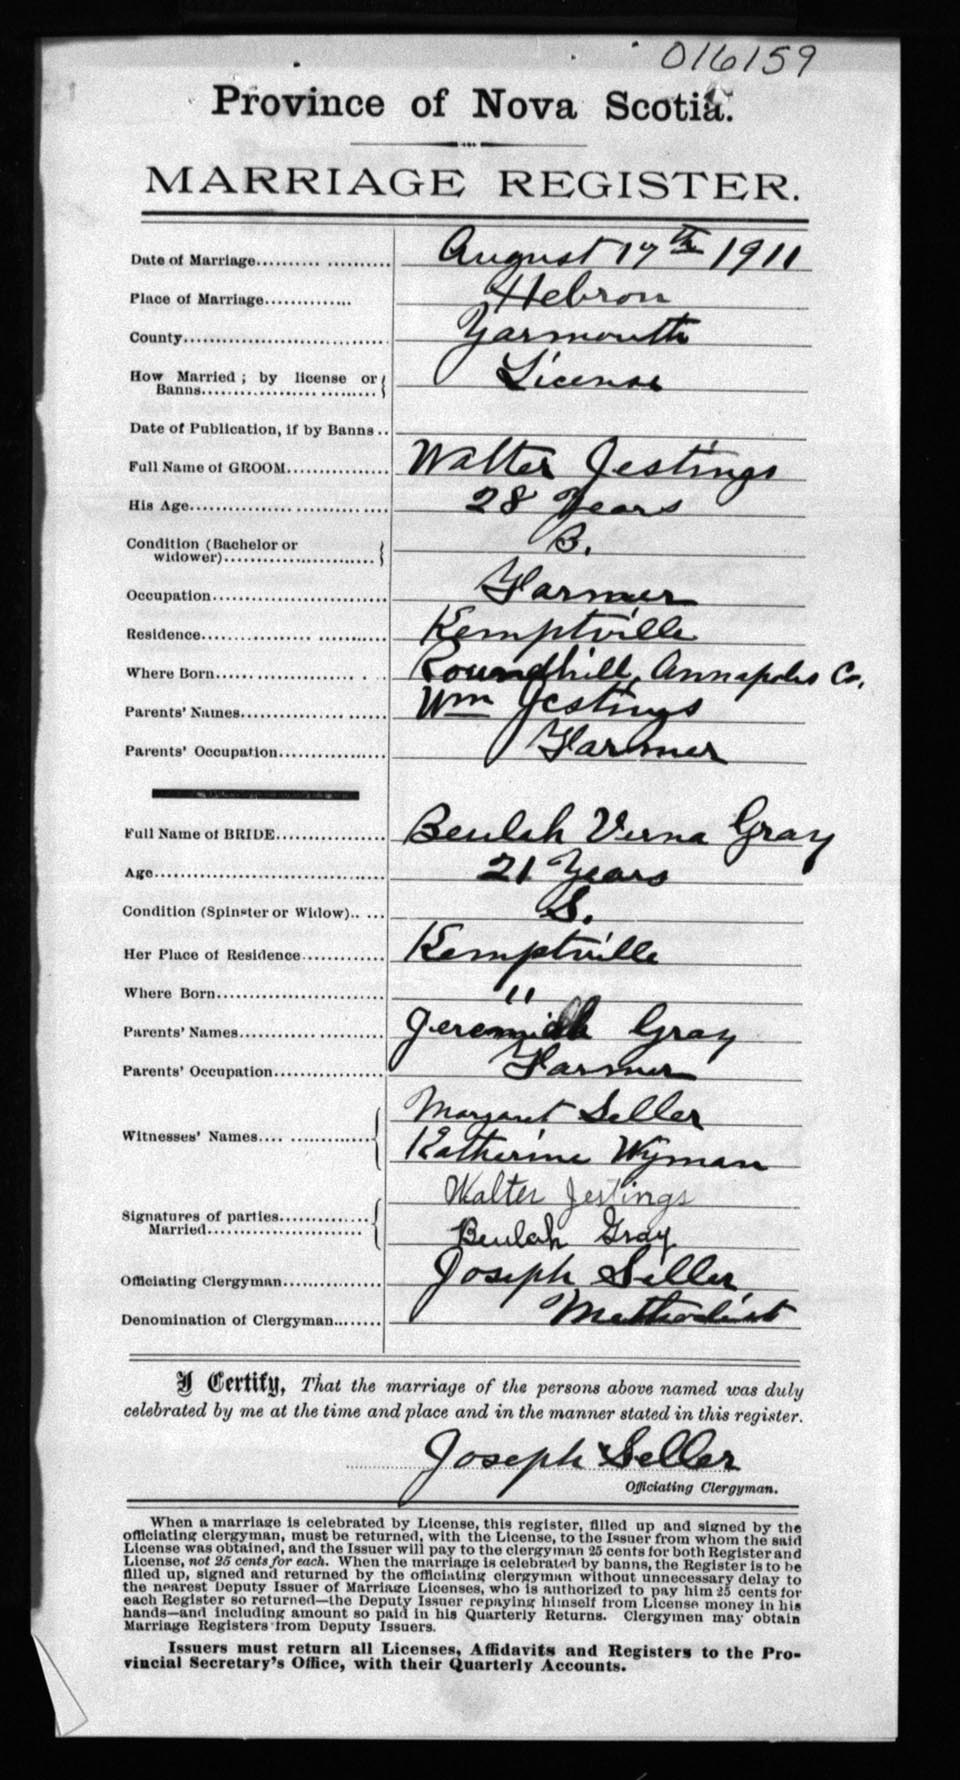 016159
Province of Nova Scotia.
MARRIAGE REGISTER.
Date of Marriage.................... August 17th 1911
Place of Marriage.............. Hebron
County................................ Yarmouth
How Married ; by license or
Banns............................ License
Date of Publication, if by Banns ..
Full Name of GROOM................ Walter Jestings
His Age................................ 28 Years
Condition (Bachelor or
widower)........................ B.
Occupation............................ Farmer
Residence............................ Kemptville
Where Born.................... Roundhill, Annapolis Co.
Parents' Names...................... Wm Jestings
Parents' Occupation................. Farmer
Full Name of BRIDE................ Beulah Verna Gray
Age.................................... 21 Years
Condition (Spinster or Widow)..... S.
Her Place of Residence............ Kemptville
Where Born........................... "
Parents' Names...................... Jeremiah Gray
Parents' Occupation................. Farmer
Margaret Seller
Witnesses' Names.................. Katherine Wyman
Walter Jestings
Signatures of parties..............
Married........................ Beulah Gray
Officiating Clergyman............... Joseph Seller
Denomination of Clergyman........ Methodist
I Certify, That the marriage of the persons above named was duly
celebrated by me at the time and place and in the manner stated in this register.
Joseph Seller
Officiating Clergyman.
When a marriage is celebrated by License, this register, filled up and signed by the
officiating clergyman, must be returned, with the License, to the Issuer from whom the said
License was obtained, and the Issuer will pay to the clergyman 25 cents for both Register and
License, not 25 cents for each. When the marriage is celebrated by banns, the Register is to be
filled up, signed and returned by the officiating clergyman without unnecessary delay to
the nearest Deputy Issuer of Marriage Licenses, who is authorized to pay him 25 cents for
each Register so returned—the Deputy Issuer repaying himself from License money in his
hands—and including amount so paid in his Quarterly Returns. Clergymen may obtain
Marriage Registers from Deputy Issuers.
Issuers must return all Licenses, Affidavits and Registers to the Pro-
vincial Secretary's Office, with their Quarterly Accounts.